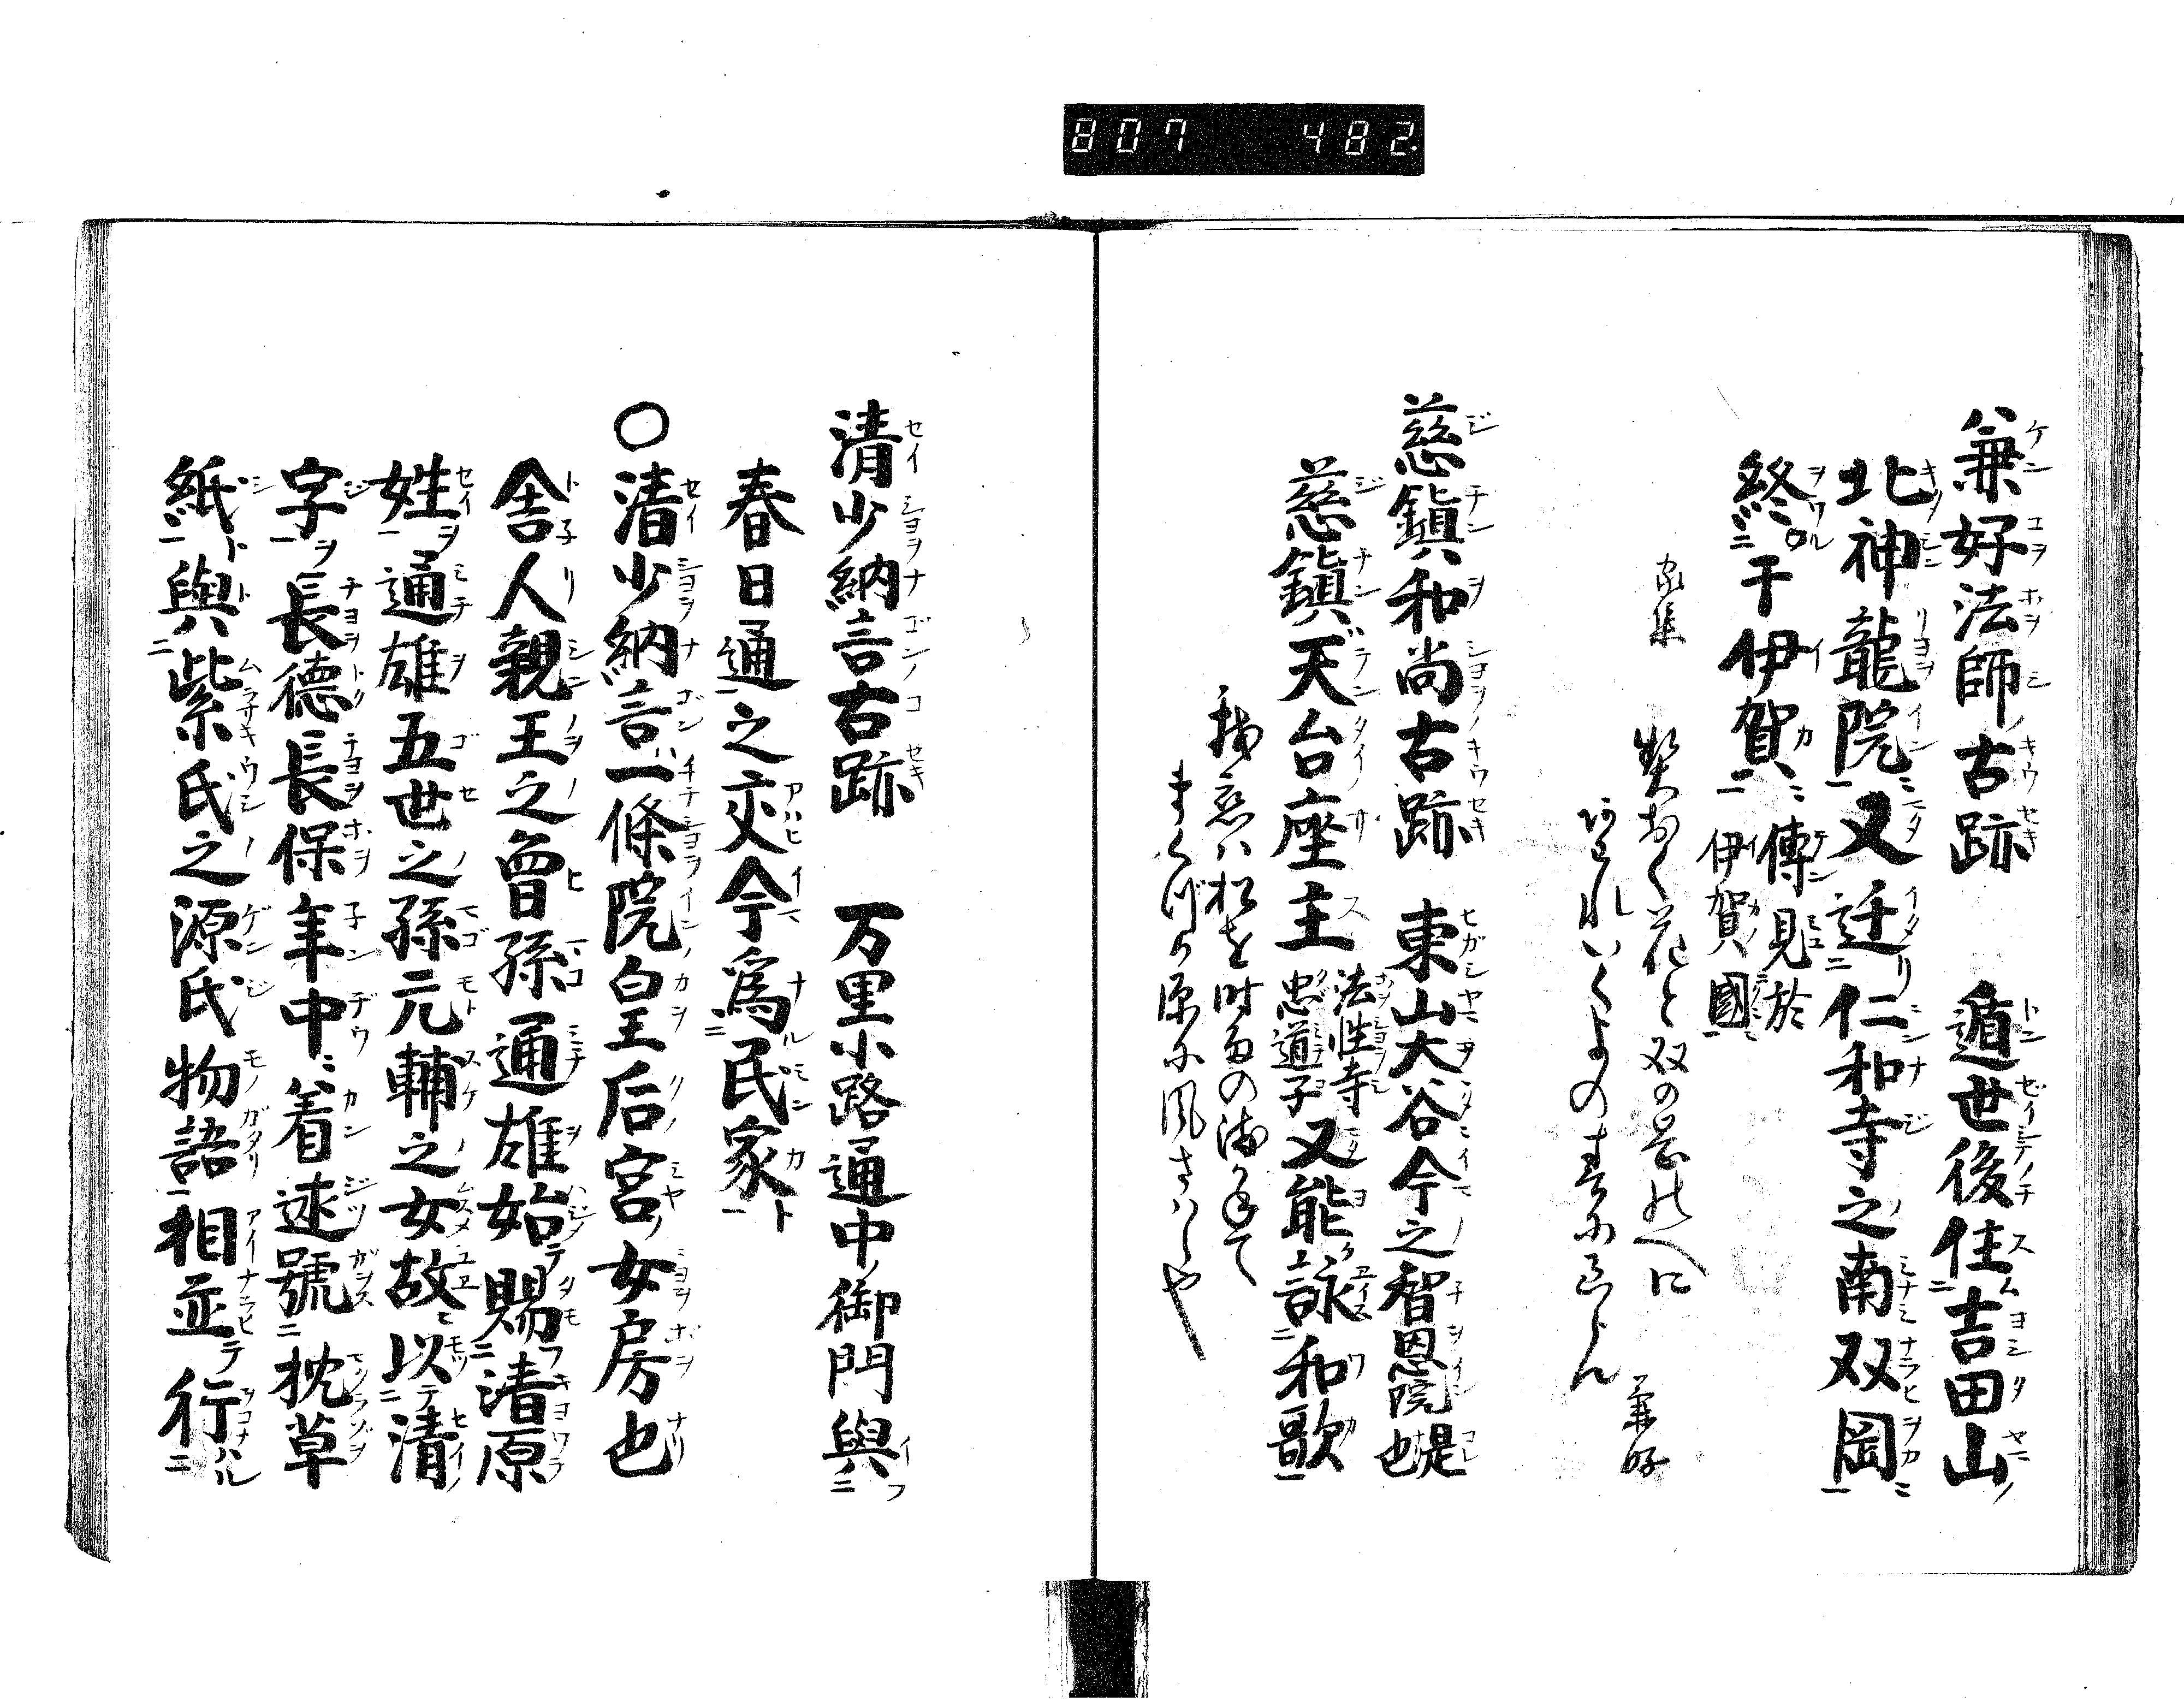 807 482.
兼好法師古跡 遁世後住吉田山
北神龍院又迁仁和寺之南双岡
終干伊賀傳見於伊賀國
家集 契おく花と双の岡のへに 兼好
あはれいくよの春にあはん
慈鎮和尚古跡 東山大谷今之智恩院是也
慈鎮天台座主法性寺忠道子又能詠和歌
我恋ハ松を時雨の染かねて
まくつか原に風さハくや
清少納言古跡 万里小路通中御門與
春日通之交今為民家
〇清少納言一條院皇后宮女房也
舎人親王之曾孫通雄始賜清原
姓通雄五世之孫元輔之女故以清
字長徳長保年中着述號枕草
紙與紫氏之源氏物語相並行